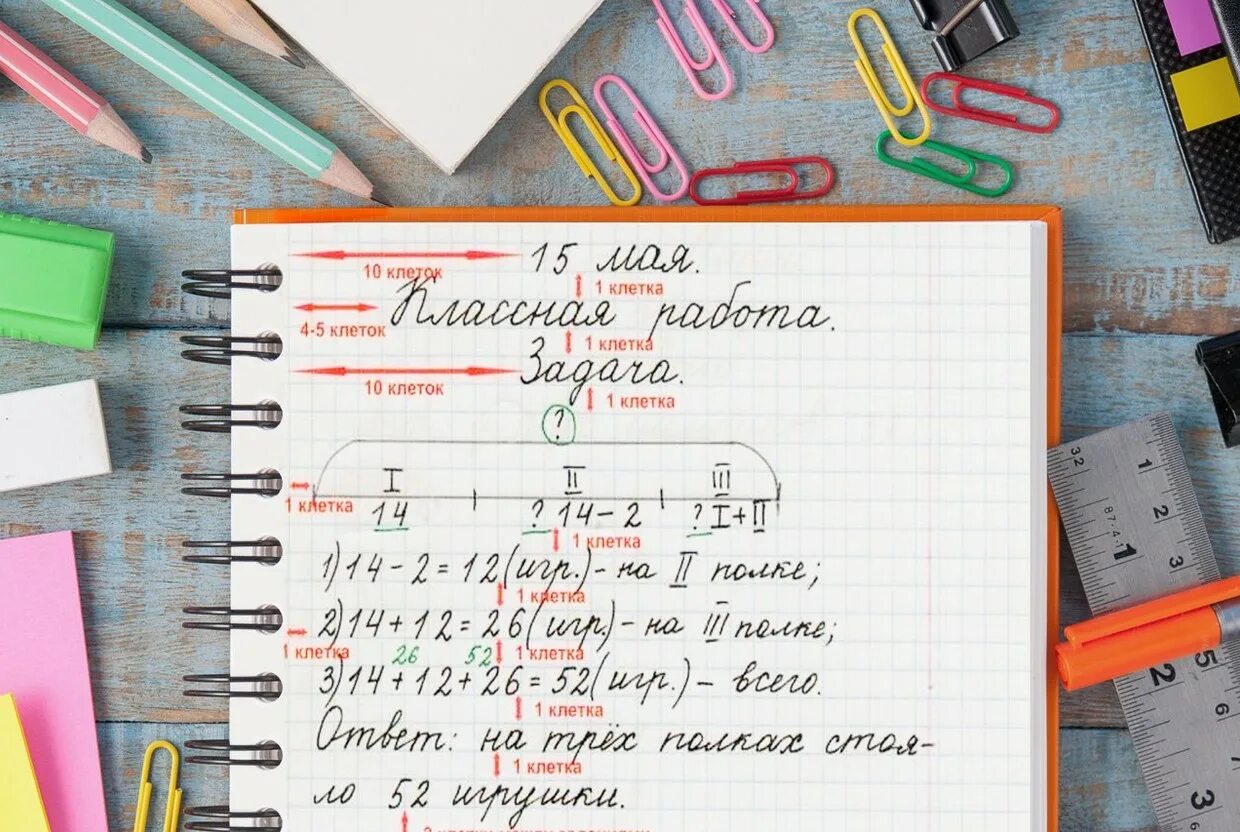 15 мая.
10 клеток
1 клетка
Классная работа.
4-5 клеток
1 клетка
Задача.
10 клеток
1 клетка
?
I II III
1 клетка
14 ? 14 - 2 ? I + II
1 клетка
1) 14 - 2 = 12 (игр.) - на II полке;
1 клетка
2) 14 + 12 = 26 (игр.) - на III полке;
1 клетка
26 52 1 клетка
3) 14 + 12 + 26 = 52 (игр.) - всего.
1 клетка
Ответ: на трёх полках стоя-
1 клетка
ло 52 игрушки.
32 1
1 2 3
2 5 6
3